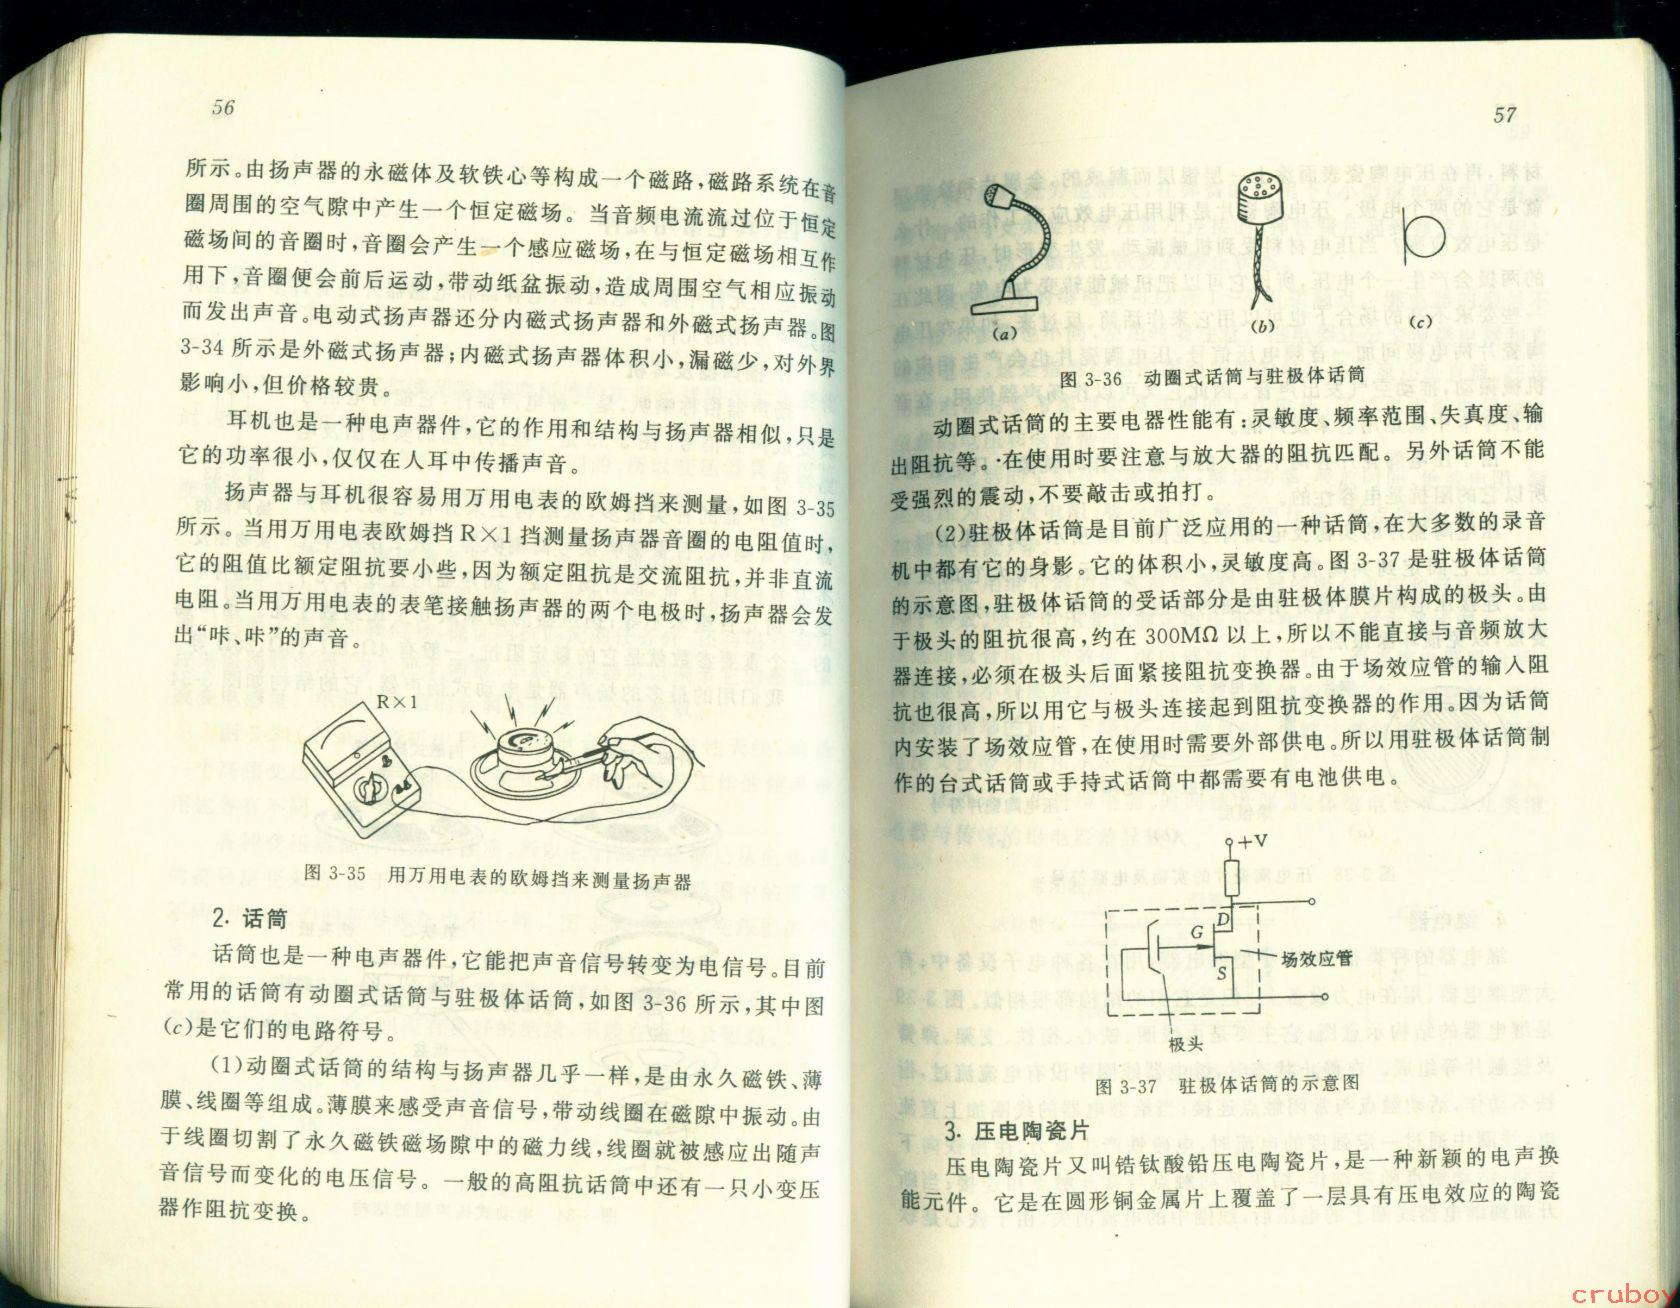 56
所示。由扬声器的永磁体及软铁心等构成一个磁路,磁路系统在音
圈周围的空气隙中产生一个恒定磁场。当音频电流流过位于恒定
磁场间的音圈时,音圈会产生一个感应磁场,在与恒定磁场相互作
用下,音圈便会前后运动,带动纸盆振动,造成周围空气相应振动
而发出声音。电动式扬声器还分内磁式扬声器和外磁式扬声器。图
3-34 所示是外磁式扬声器;内磁式扬声器体积小,漏磁少,对外界
影响小,但价格较贵。
耳机也是一种电声器件,它的作用和结构与扬声器相似,只是
它的功率很小,仅仅在人耳中传播声音。
扬声器与耳机很容易用万用电表的欧姆挡来测量,如图 3-35
所示。当用万用电表欧姆挡 R×1 挡测量扬声器音圈的电阻值时,
它的阻值比额定阻抗要小些,因为额定阻抗是交流阻抗,并非直流
电阻。当用万用电表的表笔接触扬声器的两个电极时,扬声器会发
出“咔、咔”的声音。
R×1
图 3-35 用万用电表的欧姆挡来测量扬声器
2. 话筒
话筒也是一种电声器件,它能把声音信号转变为电信号。目前
常用的话筒有动圈式话筒与驻极体话筒,如图 3-36 所示,其中图
(c)是它们的电路符号。
(1)动圈式话筒的结构与扬声器几乎一样,是由永久磁铁、薄
膜、线圈等组成。薄膜来感受声音信号,带动线圈在磁隙中振动。由
于线圈切割了永久磁铁磁场隙中的磁力线,线圈就被感应出随声
音信号而变化的电压信号。一般的高阻抗话筒中还有一只小变压
器作阻抗变换。
57
(a)
(b)
(c)
图 3-36 动圈式话筒与驻极体话筒
动圈式话筒的主要电器性能有:灵敏度、频率范围、失真度、输
出阻抗等。在使用时要注意与放大器的阻抗匹配。另外话筒不能
受强烈的震动,不要敲击或拍打。
(2)驻极体话筒是目前广泛应用的一种话筒,在大多数的录音
机中都有它的身影。它的体积小,灵敏度高。图 3-37 是驻极体话筒
的示意图,驻极体话筒的受话部分是由驻极体膜片构成的极头。由
于极头的阻抗很高,约在 300MΩ 以上,所以不能直接与音频放大
器连接,必须在极头后面紧接阻抗变换器。由于场效应管的输入阻
抗也很高,所以用它与极头连接起到阻抗变换器的作用。因为话筒
内安装了场效应管,在使用时需要外部供电。所以用驻极体话筒制
作的台式话筒或手持式话筒中都需要有电池供电。
+V
D
G
S
场效应管
极头
图 3-37 驻极体话筒的示意图
3. 压电陶瓷片
压电陶瓷片又叫锆钛酸铅压电陶瓷片,是一种新颖的电声换
能元件。它是在圆形铜金属片上覆盖了一层具有压电效应的陶瓷
cruboy